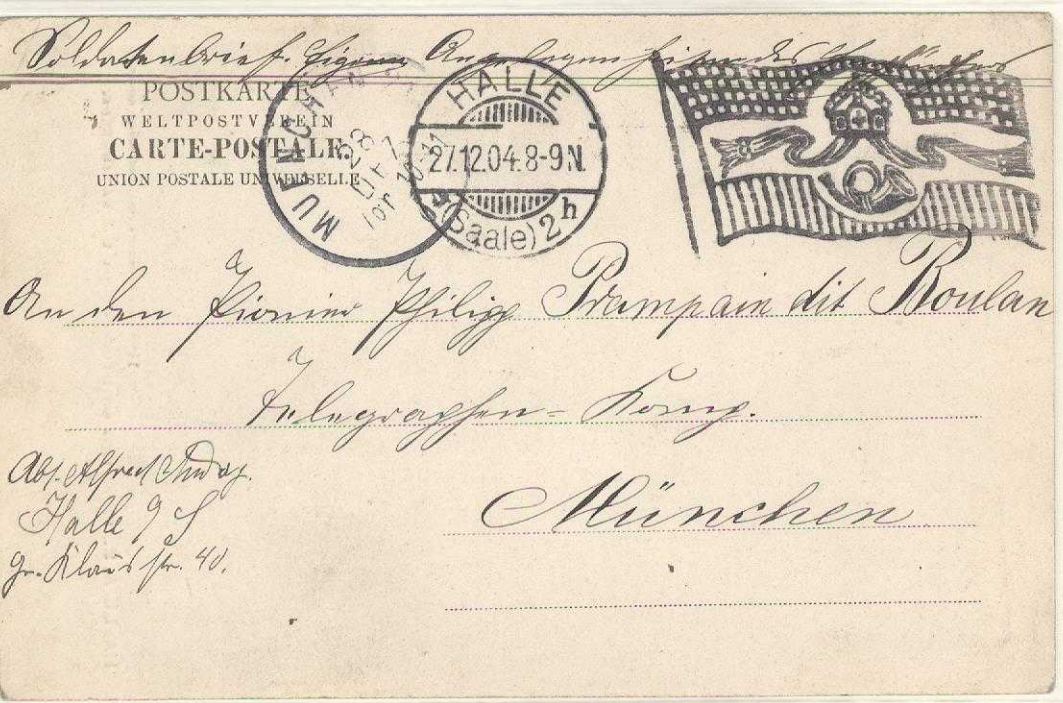 Soldatenbrief. Eigene Angelegenheiten des Empfängers
POSTKARTE
WELTPOSTVEREIN
CARTE-POSTALE.
UNION POSTALE UNIVERSELLE
MUENCHEN
28 DEZ
HALLE
27.12.04.8-9N.
(Saale) 2h
An den Pionier Philipp Prampain dit Roulan
Telegraphen-Komp.
Abs. Alfred
Halle a/S
gr. Klausstr. 40.
München